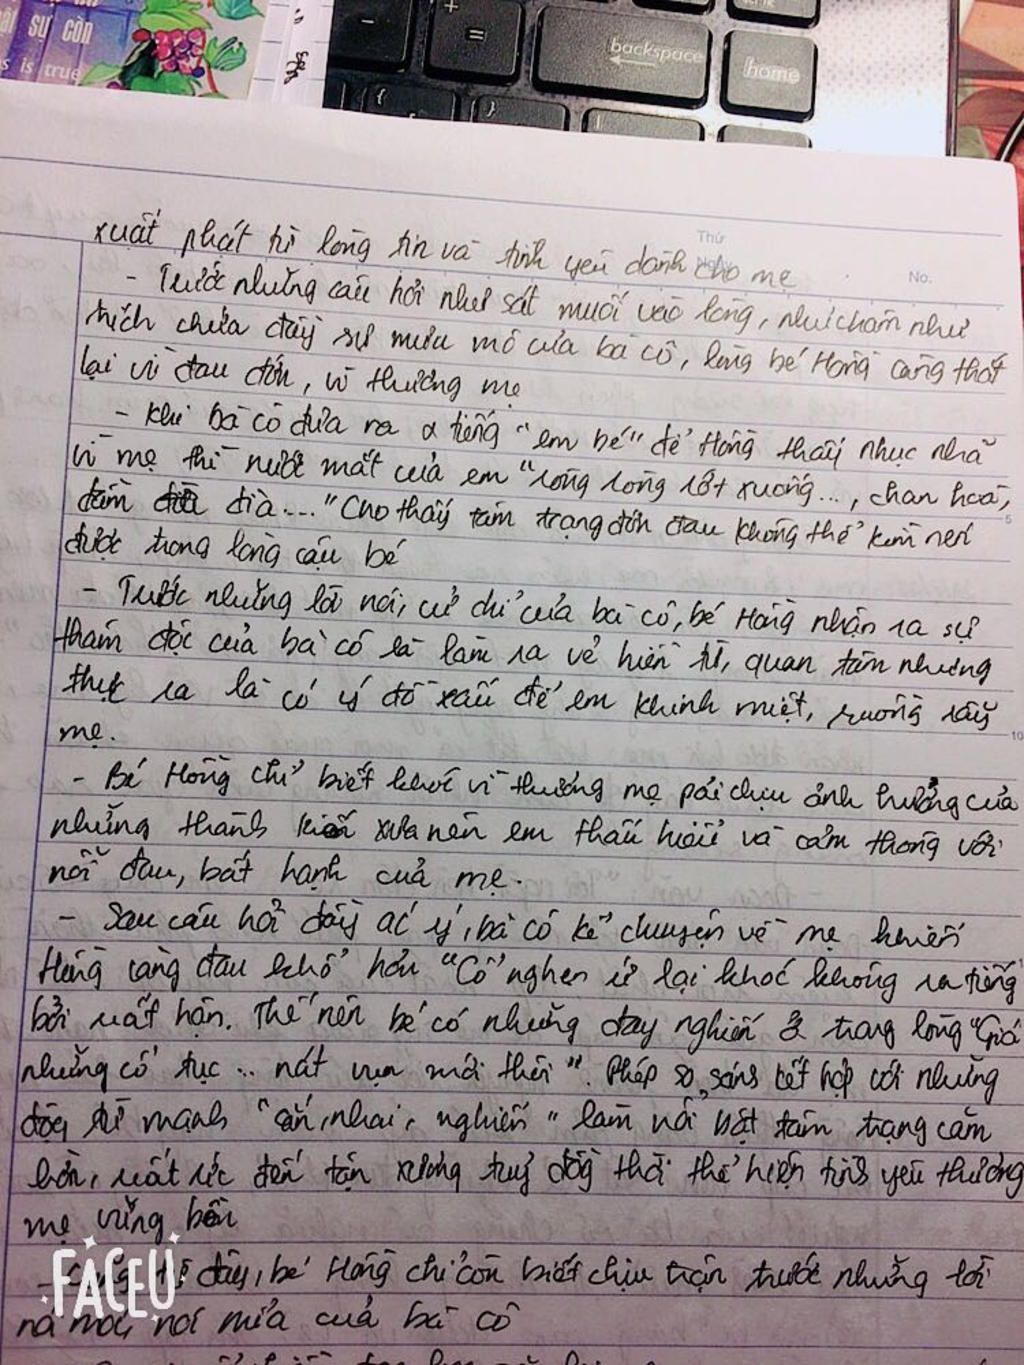 sự còn
is true
backspace
home
Thứ
No.
xuất phát từ lòng tin và tình yêu dành cho mẹ
- Trước những câu hỏi như sát muối vào lòng, như châm như
trích chứa đầy sự mưu mô của bà cô, lòng bé Hồng càng thắt
lại vì đau đớn, vì thương mẹ
- Khi bà cô đưa ra 2 tiếng "em bé" để Hồng thấy nhục nhã
vì mẹ thì nước mắt của em "ròng ròng rớt xuống..., chan hoà,
đầm đìa..." Cho thấy tâm trạng đớn đau không thể kìm nén
được trong lòng cậu bé
- Trước những lời nói, cử chỉ của bà cô, bé Hồng nhận ra sự
thâm độc của bà cô là làm ra vẻ hiền từ, quan tâm nhưng
thực ra là có ý đồ xấu để em khinh miệt, ruồng rẫy
mẹ.
- Bé Hồng chỉ biết khóc vì thương mẹ pải chịu ảnh hưởng của
những thành kiến xưa nên em thấu hiểu và cảm thông với
nỗi đau, bất hạnh của mẹ.
- Sau câu hỏi đầy ác ý, bà cô kể chuyện về mẹ khiến
Hồng càng đau khổ hơn "Cổ nghẹn ứ lại khóc không ra tiếng
bởi uất hận. Thế nên bé có những day nghiến ở trong lòng "Giá
những cổ tục ... nát vụn mới thôi". Phép so sánh kết hợp với những
động từ mạnh "cắn, nhai, nghiến" làm nổi bật tâm trạng căm
hờn, uất ức đến tận xương tuỷ đồng thời thể hiện tình yêu thương
mẹ vững bền
đây, bé Hồng chỉ còn biết chịu trận trước những lời
nói mỉa của bà cô
FACEU